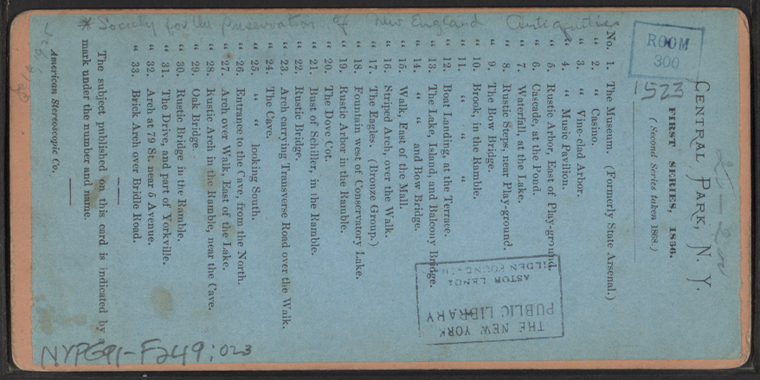 CENTRAL PARK, N. Y.
FIRST SERIES, 1856.
(Second Series taken 1868.)
No. 1. The Museum. (Formerly State Arsenal.)
" 2. " Casino.
" 3. " Vine-clad Arbor.
" 4. " Music Pavilion.
" 5. Rustic Arbor, East of Play-ground.
" 6. Cascade, at the Pond.
" 7. Waterfall, at the Lake.
" 8. Rustic Steps, near Play-ground.
" 9. The Bow Bridge.
" 10. Brook, in the Ramble.
" 11. " " "
" 12. Boat Landing, at the Terrace.
" 13. The Lake, Island, and Balcony Bridge.
" 14. " " and Bow Bridge.
" 15. Walk, East of the Mall.
" 16. Striped Arch, over the Walk.
" 17. The Eagles. (Bronze Group.)
" 18. Fountain west of Conservatory Lake.
" 19. Rustic Arbor in the Ramble.
" 20. The Dove Cot.
" 21. Bust of Schiller, in the Ramble.
" 22. Rustic Bridge.
" 23. Arch carrying Transverse Road over the Walk.
" 24. The Cave.
" 25. " " looking South.
" 26. Entrance to the Cave from the North.
" 27. Arch over Walk, East of the Lake.
" 28. Rustic Arch in the Ramble, near the Cave.
" 29. Oak Bridge.
" 30. Rustic Bridge in the Ramble.
" 31. The Drive, and part of Yorkville.
" 32. Arch at 79 St. near 5 Avenue.
" 33. Brick Arch over Bridle Road.
The subject published on this card is indicated by
* mark under the number and name.
American Stereoscopic Co.
Society for the Preservation of New England Antiquities
ROOM
300
1523
THE NEW YORK
PUBLIC LIBRARY
ASTOR LENOX
TILDEN FOUNDATION
NYPG91-F249:023